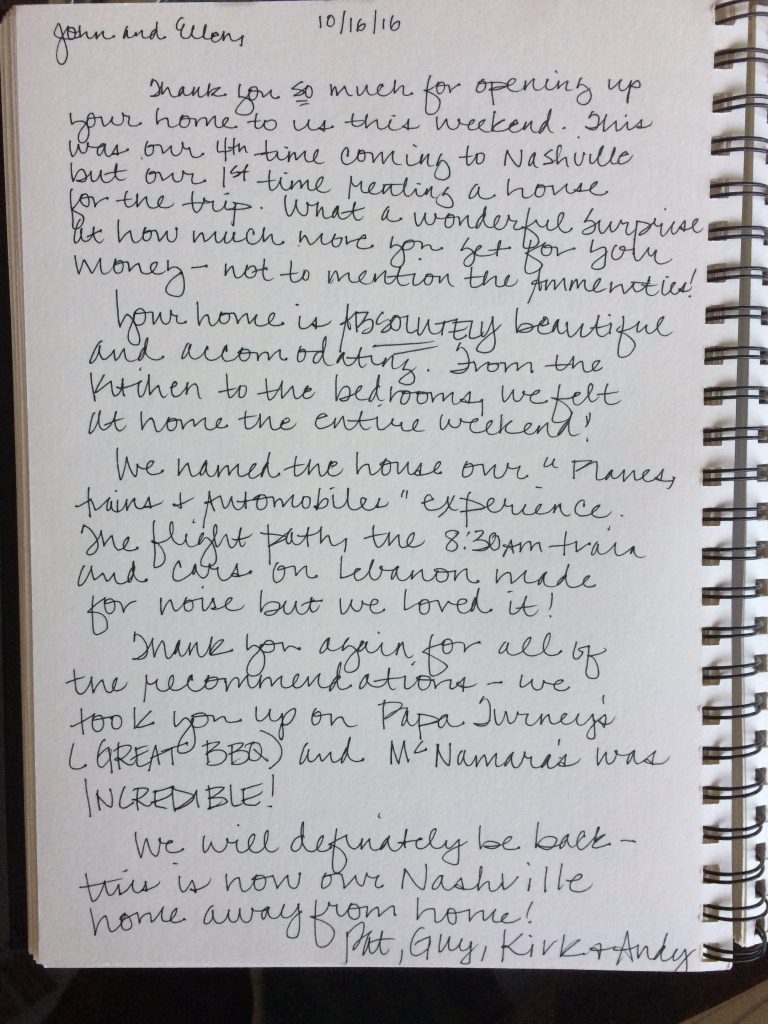 John and Ellen, 10/16/16
Thank you so much for opening up
your home to us this weekend. This
was our 4th time coming to Nashville
but our 1st time renting a house
for the trip. What a wonderful surprise
at how much more you get for your
money - not to mention the Ammenities!
Your home is ABSOLUTELY beautiful
and accomodating. From the
kitchen to the bedrooms, we felt
at home the entire weekend!
We named the house our "Planes,
trains & Automobiles" experience.
The flight path, the 8:30AM train
and cars on Lebanon made
for noise but we loved it!
Thank you again for all of
the recommendations - we
took you up on Papa Turney's
(GREAT BBQ) and McNamara's was
INCREDIBLE!
We will definately be back -
this is now our Nashville
home away from home!
Pat, Guy, Kirk & Andy